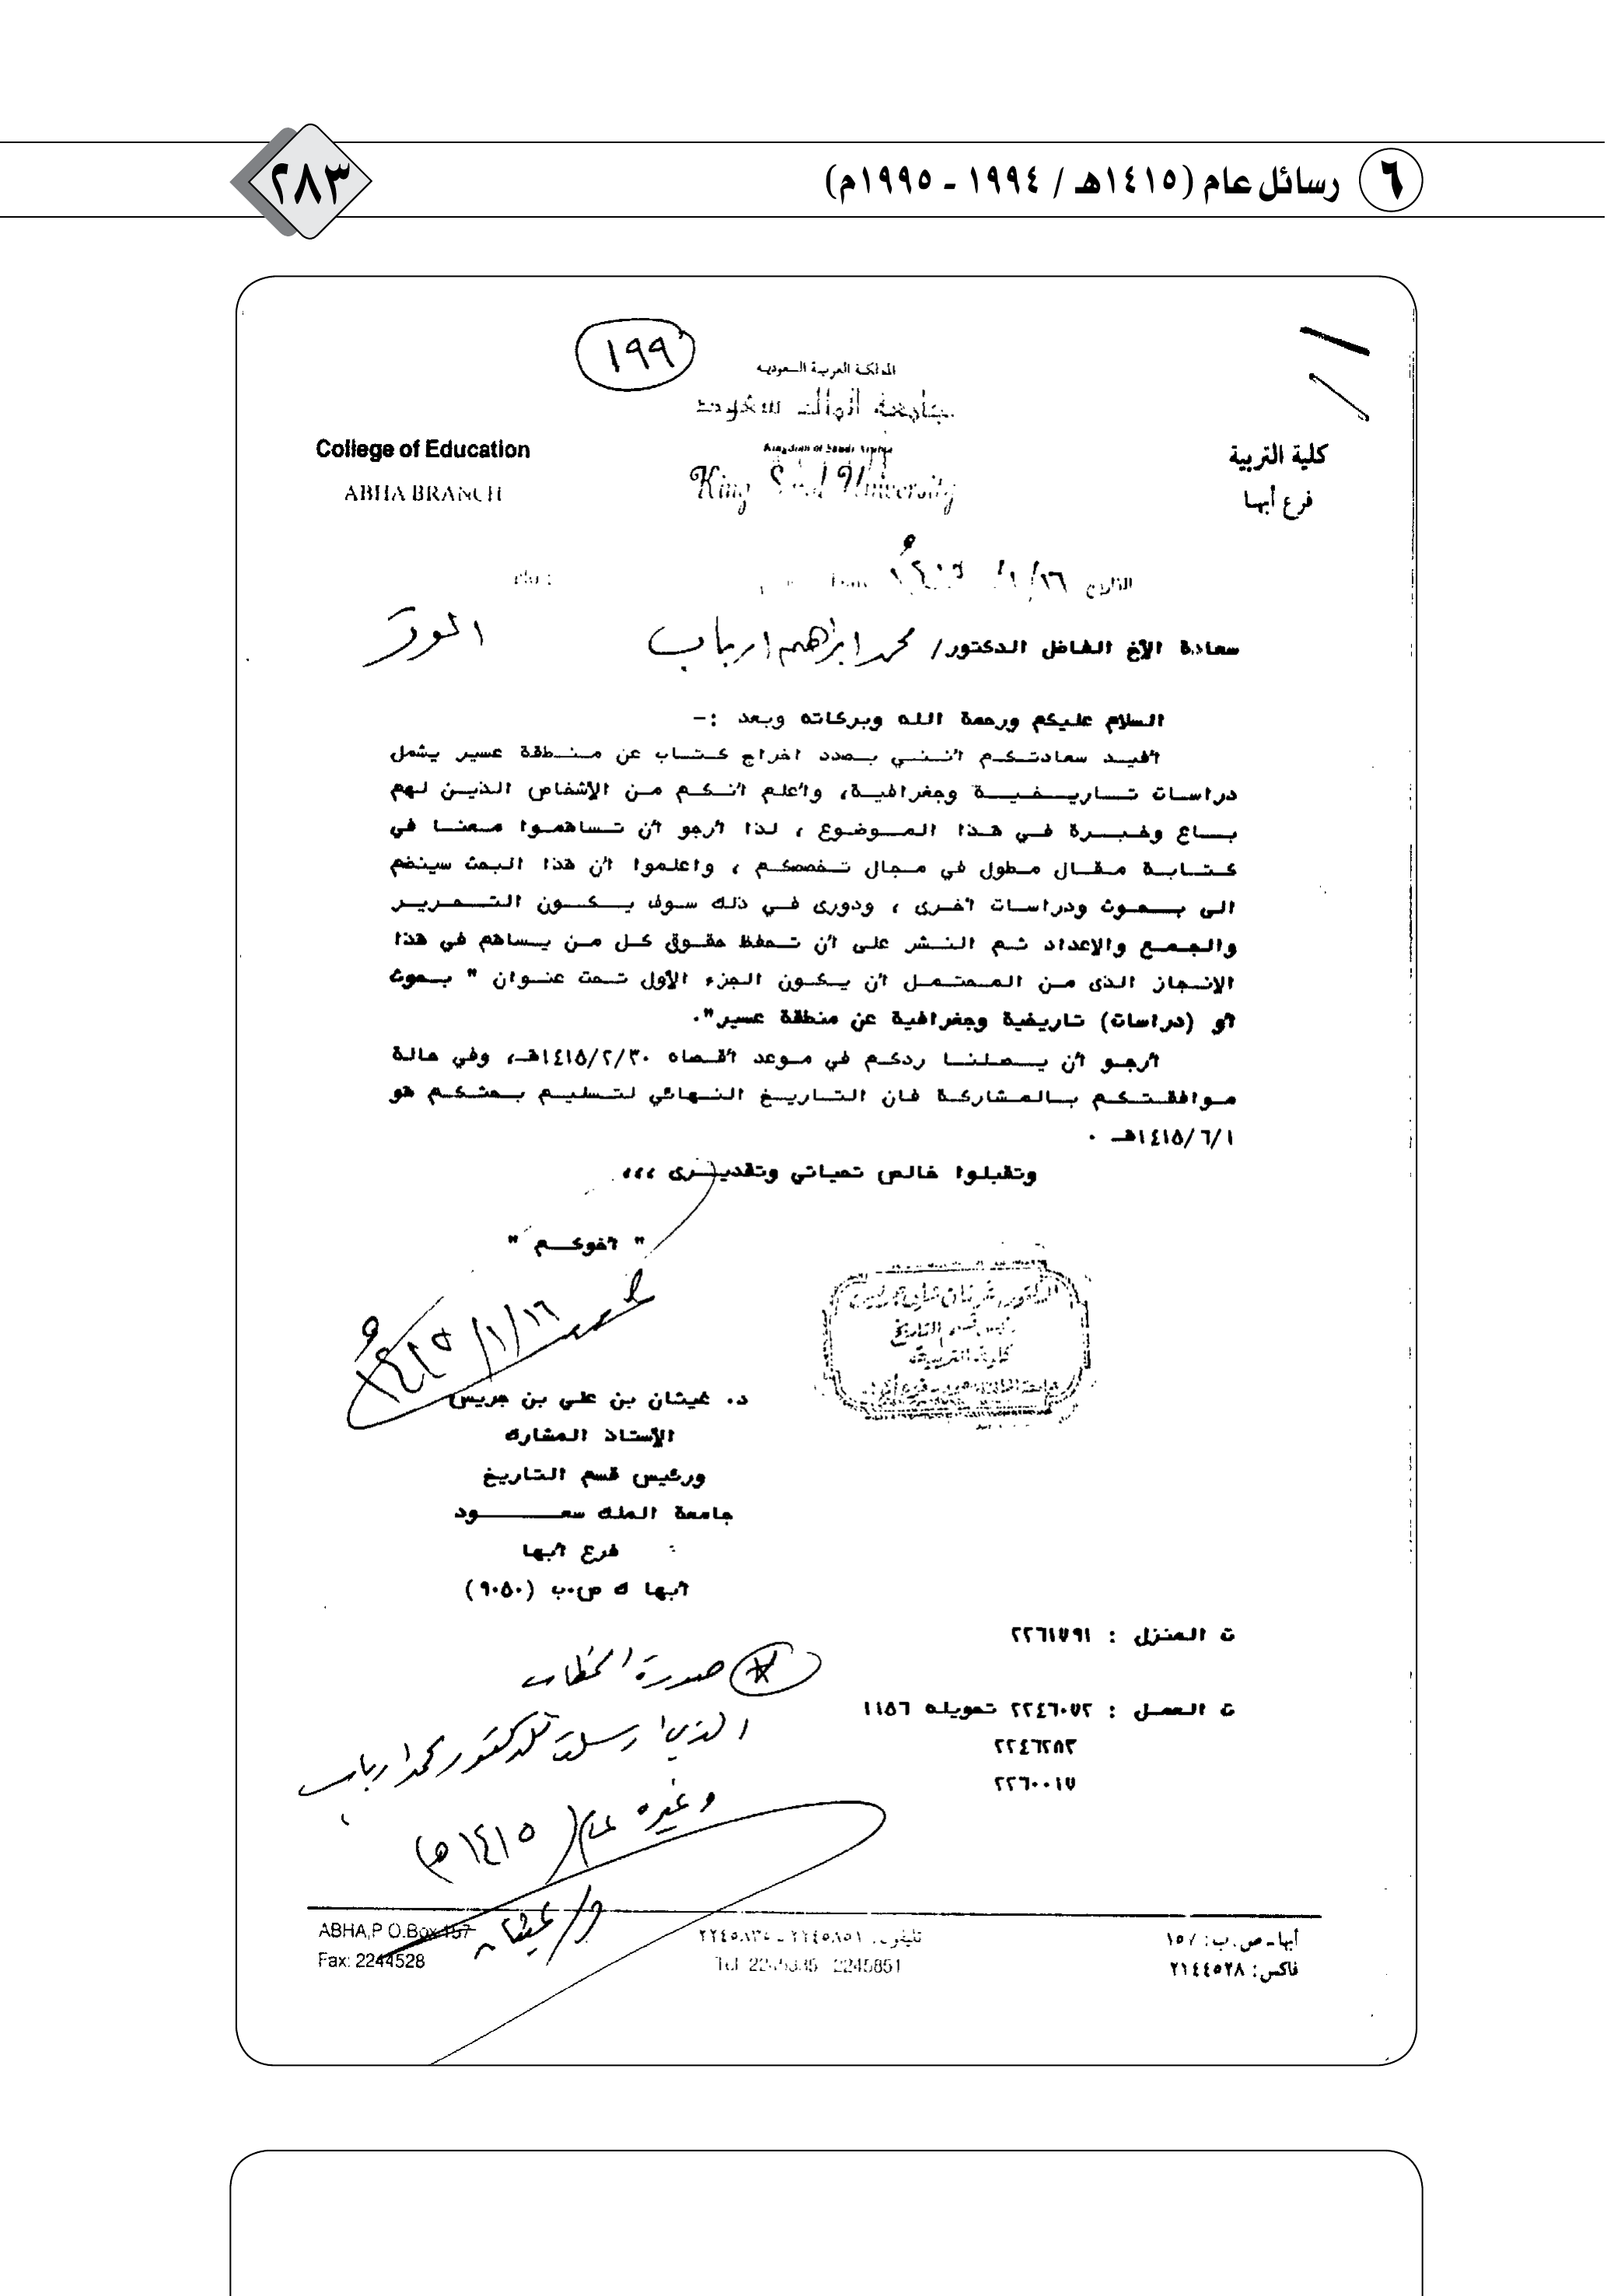 ٦ رسائل عام (١٤١٥هـ / ١٩٩٤ - ١٩٩٥م)
٢٨٣
١٩٩
المملكة العربية السعودية
جامعة الملك سعود
Kingdom of Saudi Arabia
King Saud University
كلية التربية
فرع أبها
College of Education
ABHA BRANCH
التاريخ ١٦/١/
سعادة الأخ الفاضل الدكتور/ محمد ابراهيم ارباب الموقر
السلام عليكم ورحمة الله وبركاته وبعد :-
أفيد سعادتكم أنني بصدد اخراج كتاب عن منطقة عسير يشمل
دراسات تاريخية وجغرافية، وأعلم أنكم من الأشخاص الذين لهم
باع وخبرة في هذا الموضوع ، لذا أرجو أن تساهموا معنا في
كتابة مقال مطول في مجال تخصصكم ، واعلموا أن هذا البحث سينضم
الى بحوث ودراسات أخرى ، ودورى في ذلك سوف يكون التحرير
والجمع والإعداد ثم النشر على أن تحفظ حقوق كل من يساهم في هذا
الإنجاز الذى من المحتمل أن يكون الجزء الأول تحت عنوان " بحوث
أو (دراسات) تاريخية وجغرافية عن منطقة عسير".
أرجو أن يصلنا ردكم في موعد أقصاه ١٤١٥/٢/٣٠هـ، وفي حالة
موافقتكم بالمشاركة فان التاريخ النهائي لتسليم بحثكم هو
١٤١٥/٦/١هـ .
وتقبلوا خالص تحياتي وتقديرى ،،،
" أخوكم "
١٦/١/١٤١٥هـ
رئيس قسم التاريخ
كلية التربية
د. غيثان بن علي بن جريس
الأستاذ المشارك
ورئيس قسم التاريخ
جامعة الملك سعود
فرع أبها
أبها ك ص.ب (٩٠٥٠)
ت المنزل : ٢٢٦١٧٩١
ت العمل : ٢٢٤٦٠٧٢ تحويله ١١٥٦
٢٢٤٦٢٨٣
٢٢٦٠٠١٧
صورة الخطاب
الذي ارسلته للدكتور محمد ارباب
وغيره عام (١٤١٥هـ)
د/ غيثان
أبها - ص. ب: ١٥٧
فاكس: ٢١٤٤٥٢٨
تليفون:
Tel 2245851
ABHA,P O.Box 157
Fax: 2244528